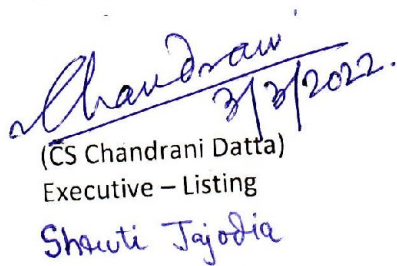 Chandrani
3/3/2022.
(CS Chandrani Datta)
Executive – Listing
Shruti Jajodia